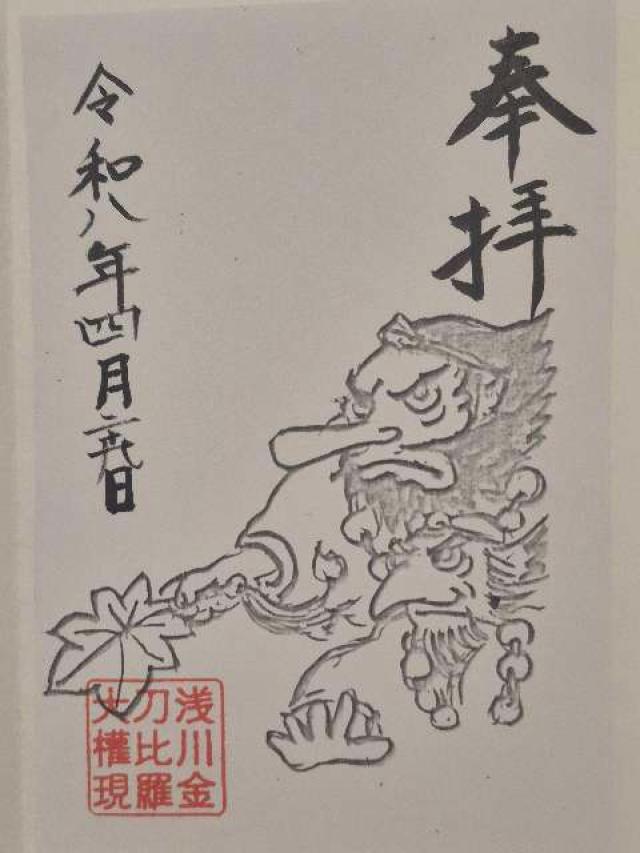 奉拝
令和八年四月二十九日
浅川金
刀比羅
大權現